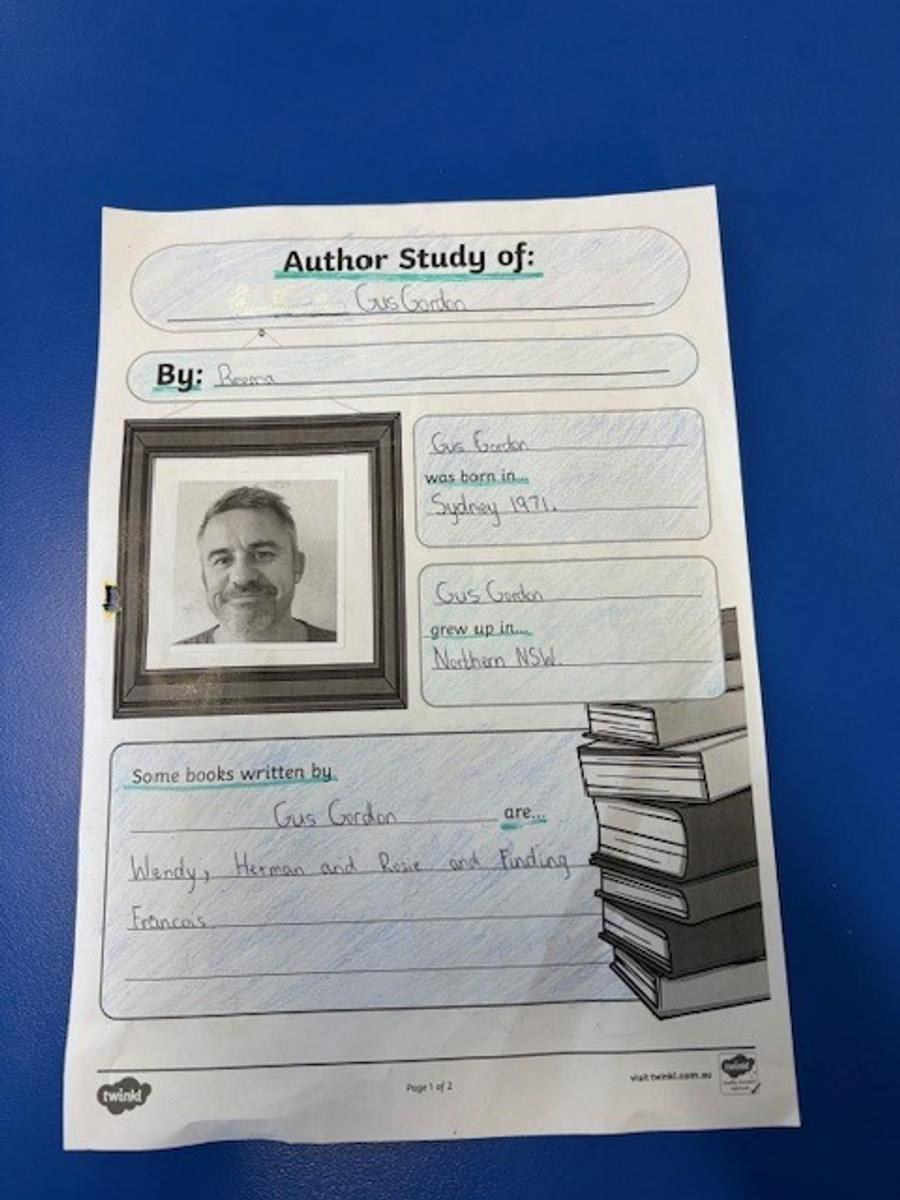 Author Study of:
Gus Gordon
By: Reema
Gus Gordon
was born in...
Sydney 1971.
Gus Gordon
grew up in...
Northern NSW.
Some books written by
Gus Gordon are...
Wendy, Herman and Rosie and Finding
Francois.
twinkl
Page 1 of 2
visit twinkl.com.au
twinkl